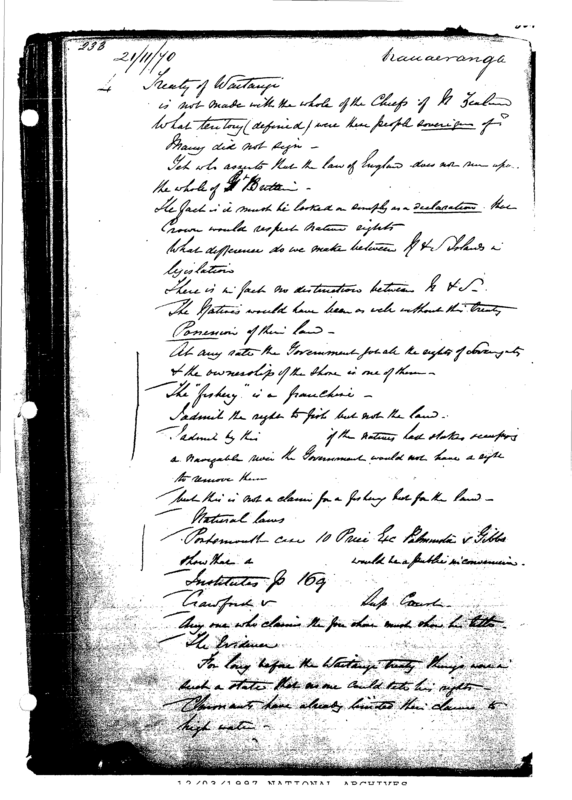 238
21/11/70 Kauaeranga
4 Treaty of Waitangi
is not made with the whole of the Chiefs of N Zealand
What territory (defined) were these people sovereign of?
Many did not sign -
Yet who asserts that the law of England does not run upon
the whole of Gt Britain -
The fact is it must be looked on simply as a declaration that
Crown would respect Native rights
What difference do we make between N & S Islands in
legislation
There is in fact no distinction between N & S -
The Natives would have been as well without this treaty
Possession of their land -
At any rate the Government got all the rights of sovereignty
& the ownership of the shore is one of them -
The "fishery" is a franchise -
I admit the right to fish but not the land -
I admit by this if the natives had stakes occupying
a navigable river the Government would not have a right
to remove them
but this is not a claim for a fishery but for the land -
Natural laws
Portsmouth case 10 Price Exc v Gibbs
show that a would be a public inconvenience -
Institutes p 169
Crawford v Sup. Court -
Any one who claims the fore shore must show his title -
The Evidence
For long before the Waitangi treaty things were in
such a state that no one could tell his rights -
Claimants have already limited their claims to
high water -
12/03/1997 NATIONAL ARCHIVES